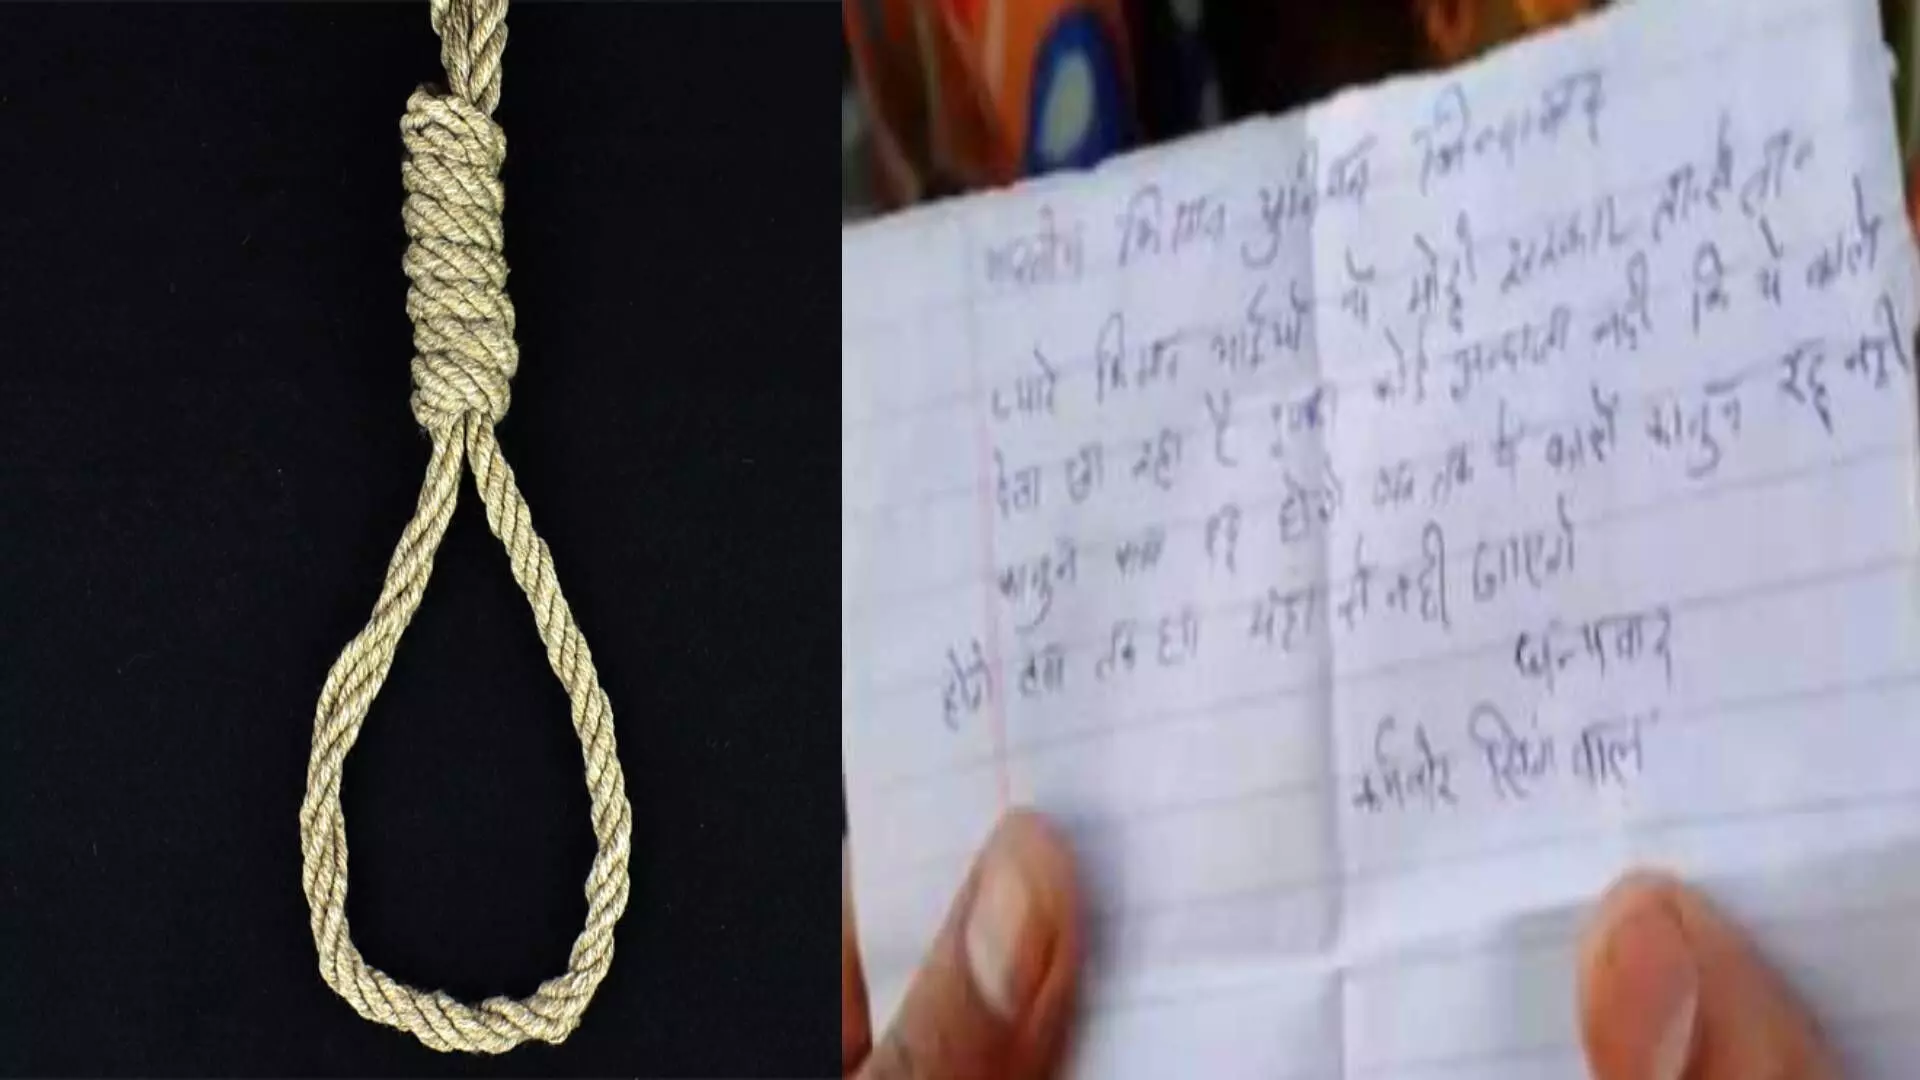 भारतीय किसान युनियन जिन्दाबाद
प्यारे किसान भाईयों ये मोदी सरकार तारीख पे तारीख
देता जा रहा है इसका कोई अन्दाजा नही कि ये काले
कानुन कब रद्द होंगे जब तक ये काले कानुन रद्द नही
होंगे तब तक हम यहा से नही जाएंगे
धन्यवाद
कर्मवीर सिंगवाल